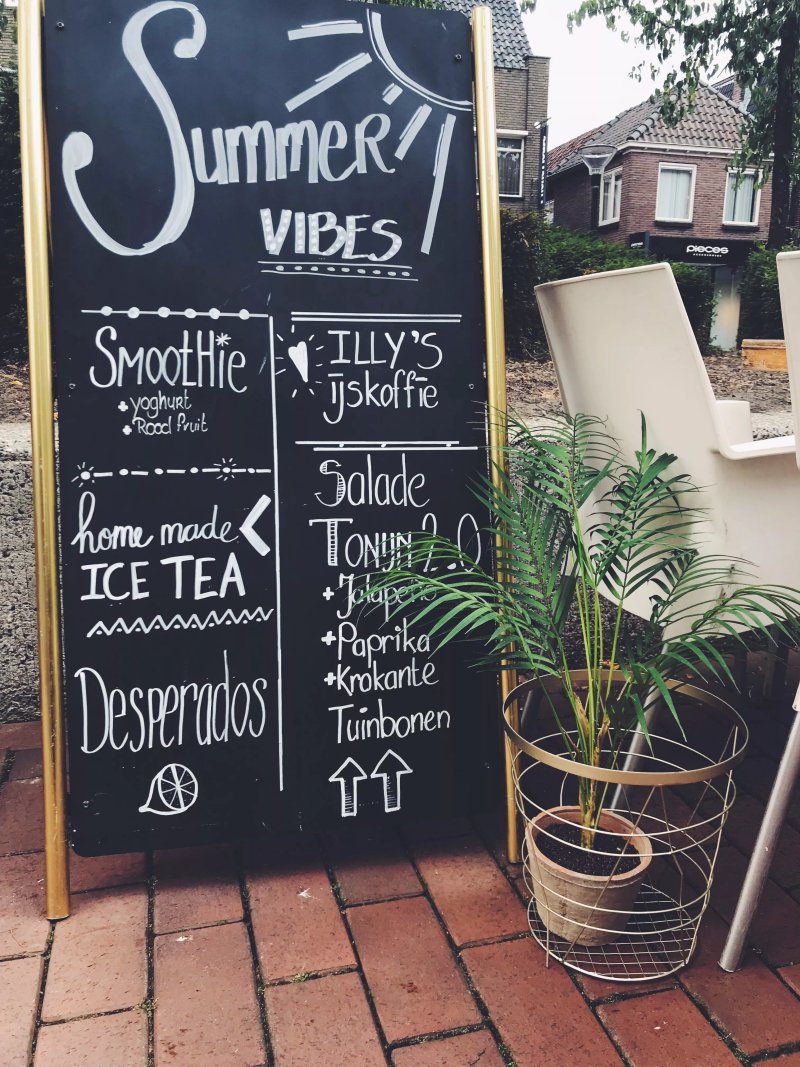 Summer
VIBES
Smoothie
+ yoghurt
+ Rood fruit
home made
ICE TEA
Desperados
ILLY'S
ijskoffie
Salade
Tonijn 2.0
+ Jalapeño
+ Paprika
+ Krokante
Tuinbonen
pieces